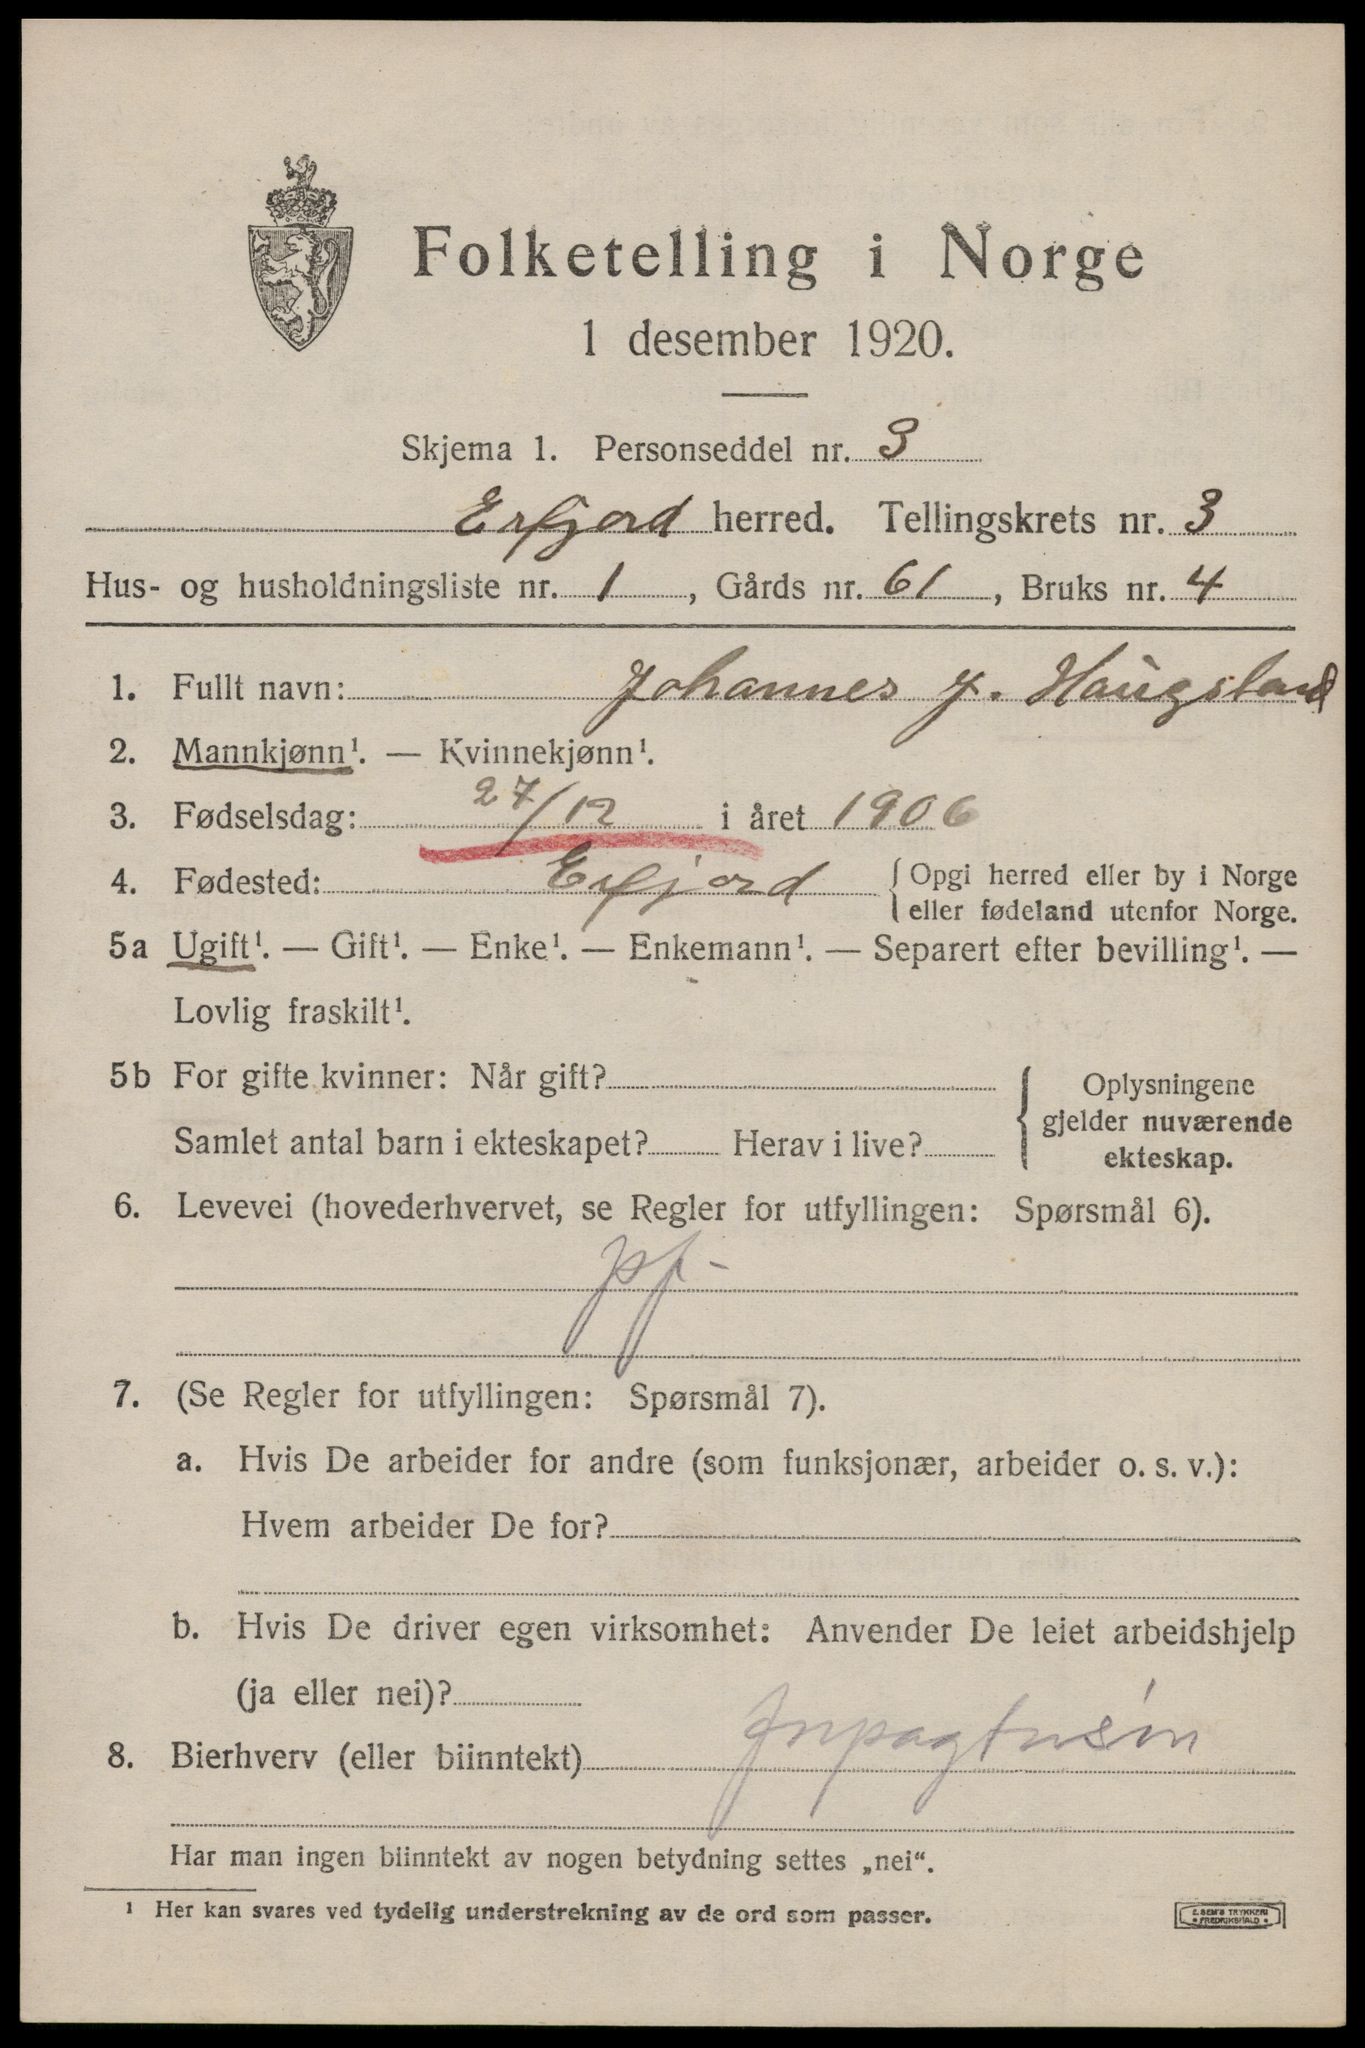 Folketelling i Norge
1 desember 1920.
Skjema 1. Personseddel nr. 3
Erfjord herred. Tellingskrets nr. 3
Hus- og husholdningsliste nr. 1, Gårds nr. 61, Bruks nr. 4
1. Fullt navn: Johannes J. Haugsland
2. Mannkjønn¹. — Kvinnekjønn¹.
3. Fødselsdag: 27/12 i året 1906
4. Fødested: Erfjord { Opgi herred eller by i Norge
eller fødeland utenfor Norge.
5a Ugift¹. — Gift¹. — Enke¹. — Enkemann¹. — Separert efter bevilling¹. —
Lovlig fraskilt¹.
5b For gifte kvinner: Når gift? { Oplysningene
gjelder nuværende
Samlet antal barn i ekteskapet? Herav i live?
ekteskap.
6. Levevei (hovederhvervet, se Regler for utfyllingen: Spørsmål 6).
7. (Se Regler for utfyllingen: Spørsmål 7).
a. Hvis De arbeider for andre (som funksjonær, arbeider o. s. v.):
Hvem arbeider De for?
b. Hvis De driver egen virksomhet: Anvender De leiet arbeidshjelp
(ja eller nei)?
8. Bierhverv (eller biinntekt)
Har man ingen biinntekt av nogen betydning settes „nei“.
¹ Her kan svares ved tydelig understrekning av de ord som passer.
E. SEM'S TRYKKERI
FREDRIKSHALD